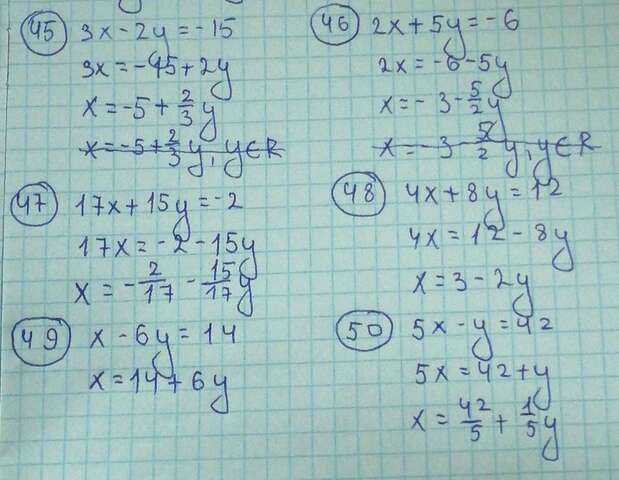 45 3x - 2y = -15
3x = -15 + 2y
x = -5 + 2/3 y
x = -5 + 2/3 y, y ∈ R
46 2x + 5y = -6
2x = -6 - 5y
x = -3 - 5/2 y
x = -3 5/2 y, y ∈ R
47 17x + 15y = -2
17x = -2 - 15y
x = -2/17 - 15/17 y
48 4x + 8y = 12
4x = 12 - 8y
x = 3 - 2y
49 x - 6y = 14
x = 14 + 6y
50 5x - y = 42
5x = 42 + y
x = 42/5 + 1/5 y